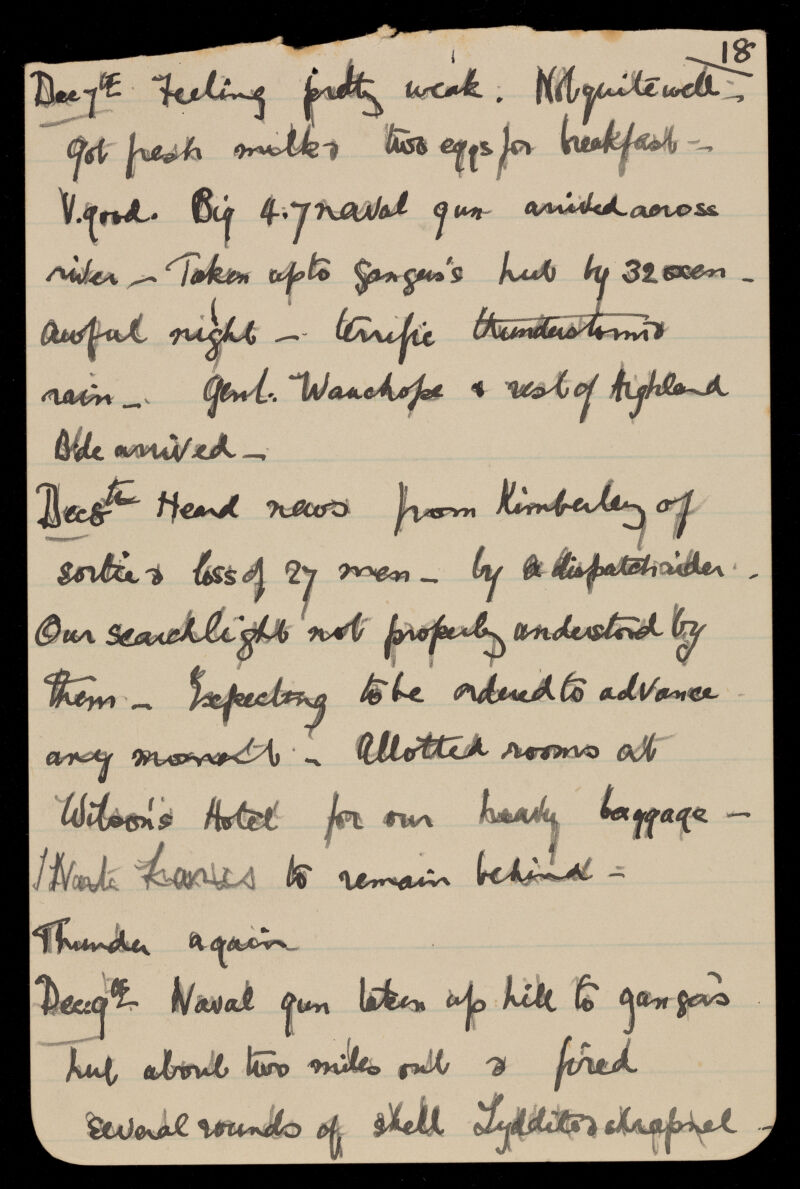 18
Dec 7th Feeling pretty weak. Not quite well –
Got fresh milk & two eggs for breakfast –
V. good. Big 4.7 naval gun arrived across
river – Taken up to Ganger's hut by 32 oxen –
awful night – terrific thunderstorm &
rain – Genl. Wauchope & rest of Highland
Bde arrived –
Dec 8th Heard news from Kimberley of
sortie & loss of 27 men – by a dispatch rider.
Our searchlight not properly understood by
them – Expecting to be ordered to advance
any moment – Allotted rooms at
Wilson's Hotel for our heavy baggage –
to remain behind –
Thunder again
Dec: 9th Naval gun taken up hill to ganger's
hut about two miles out & fired
several rounds of shell Lyddite & shrapnel –